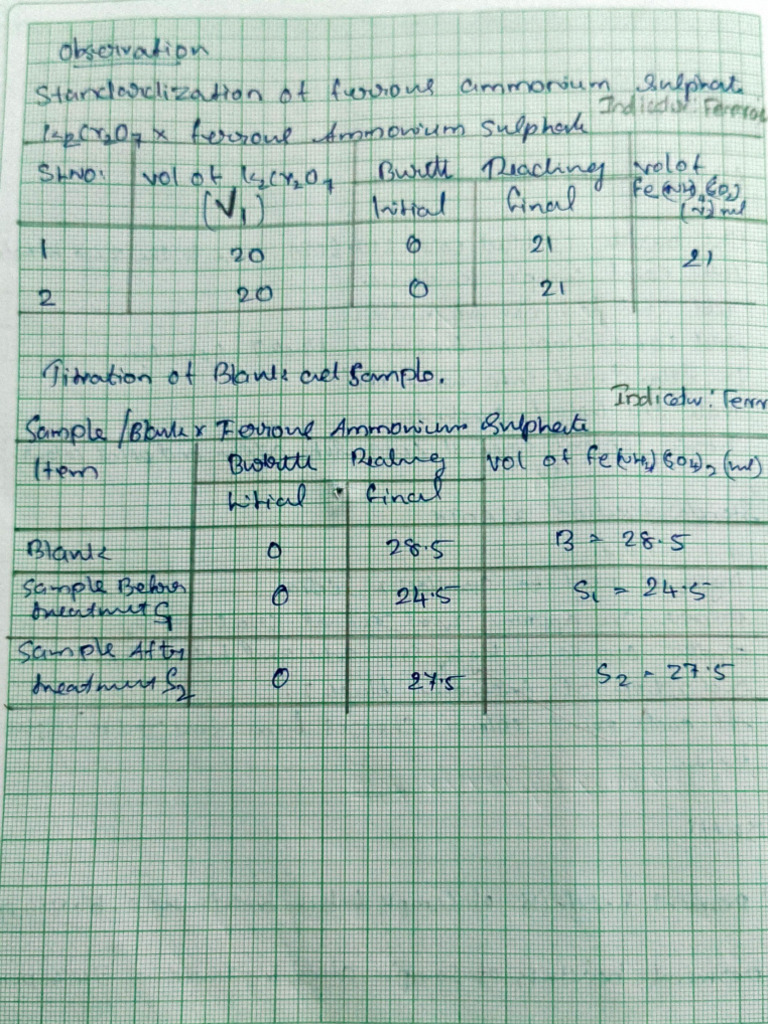 Observation
Standardization of ferrous ammonium Sulphate
Indicator: Ferro
K2Cr2O7 x ferrous Ammonium Sulphate
Sl.NO: vol of K2Cr2O7 (V1) Burette Reading vol of Fe(NH4)(SO4) (V2) ml
Initial final
1 20 0 21 21
2 20 0 21
Titration of Blank and Sample.
Indicator: Ferr
Sample /Blank x Ferrous Ammonium Sulphate
Item Burette Reading vol of Fe(NH4)(SO4)2 (ml)
Initial final
Blank 0 28.5 B = 28.5
Sample Before treatment S1 0 24.5 S1 = 24.5
Sample After treatment S2 0 27.5 S2 = 27.5